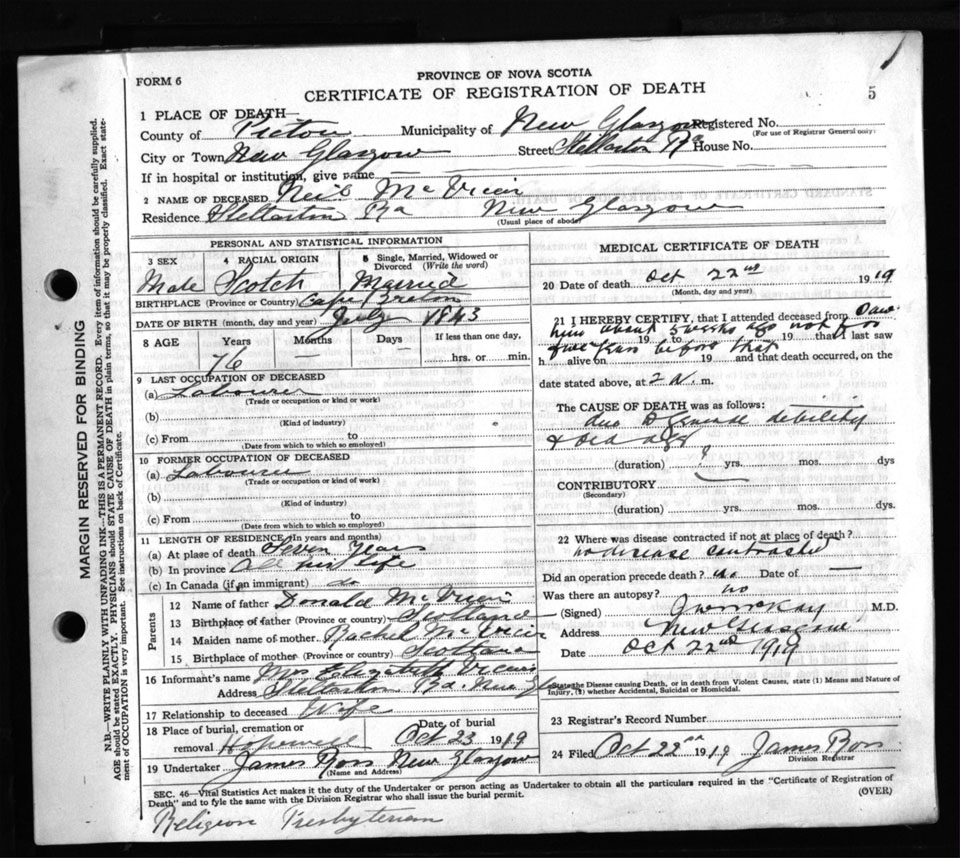 FORM 6
PROVINCE OF NOVA SCOTIA
CERTIFICATE OF REGISTRATION OF DEATH
5
1 PLACE OF DEATH—
County of Pictou Municipality of New Glasgow Registered No.
(For use of Registrar General only)
City or Town New Glasgow Street Stellarton Rd House No.
If in hospital or institution, give name
2 NAME OF DECEASED Neil McVicar
Residence Stellarton Rd New Glasgow
(Usual place of abode)
PERSONAL AND STATISTICAL INFORMATION
3 SEX 4 RACIAL ORIGIN 5 Single, Married, Widowed or Divorced (Write the word)
Male Scotch Married
BIRTHPLACE (Province or Country) Cape Breton
DATE OF BIRTH (month, day and year) July 1843
8 AGE Years Months Days If less than one day,
76 — — hrs. or min.
9 LAST OCCUPATION OF DECEASED
(a) Labourer
(Trade or occupation or kind or work)
(b)
(Kind of industry)
(c) From to
(Date from which to which so employed)
10 FORMER OCCUPATION OF DECEASED
(a) Labourer
(Trade or occupation or kind of work)
(b)
(Kind of industry)
(c) From to
(Date from which to which so employed)
11 LENGTH OF RESIDENCE (In years and months)
(a) At place of death Seven Years
(b) In province All his life
(c) In Canada (if an immigrant) do
Parents
12 Name of father Donald McVicar
13 Birthplace of father (Province or country) Scotland
14 Maiden name of mother Rachel McVicar
15 Birthplace of mother (Province or country) Scotland
16 Informant's name Mrs Elizabeth Vicars
Address Stellarton Rd New Glas
17 Relationship to deceased Wife
18 Place of burial, cremation or removal Hopewell Date of burial Oct 23 1919
19 Undertaker James Ross New Glasgow
(Name and Address)
MEDICAL CERTIFICATE OF DEATH
20 Date of death Oct 22nd 1919
(Month, day and year)
21 I HEREBY CERTIFY, that I attended deceased from Saw
him about 5 weeks ago not for
19 to 19 that I last saw
years before that
h alive on 19 and that death occurred, on the
date stated above, at 2 m.
The CAUSE OF DEATH was as follows:
due to debility
& old age
(duration) ? yrs. mos. dys
CONTRIBUTORY
(Secondary)
(duration) yrs. mos. dys.
22 Where was disease contracted if not at place of death?
no disease contracted
Did an operation precede death? no Date of —
Was there an autopsy? no
(Signed) McKay M.D.
Address New Glasgow
Date Oct 22nd 1919
State the Disease causing Death, or in death from Violent Causes, state (1) Means and Nature of Injury, (2) whether Accidental, Suicidal or Homicidal.
23 Registrar's Record Number
24 Filed Oct 22nd 1919 James Ross
Division Registrar
SEC. 46—Vital Statistics Act makes it the duty of the Undertaker or person acting as Undertaker to obtain all the particulars required in the "Certificate of Registration of
Death" and to fyle the same with the Division Registrar who shall issue the burial permit. (OVER)
Religion Presbyterian
MARGIN RESERVED FOR BINDING
N.B.—WRITE PLAINLY WITH UNFADING INK—THIS IS A PERMANENT RECORD. Every item of information should be carefully supplied.
AGE should be stated EXACTLY. PHYSICIANS should STATE CAUSE OF DEATH in plain terms, so that it may be properly classified. Exact statement of OCCUPATION is very important. See instructions on back of Certificate.